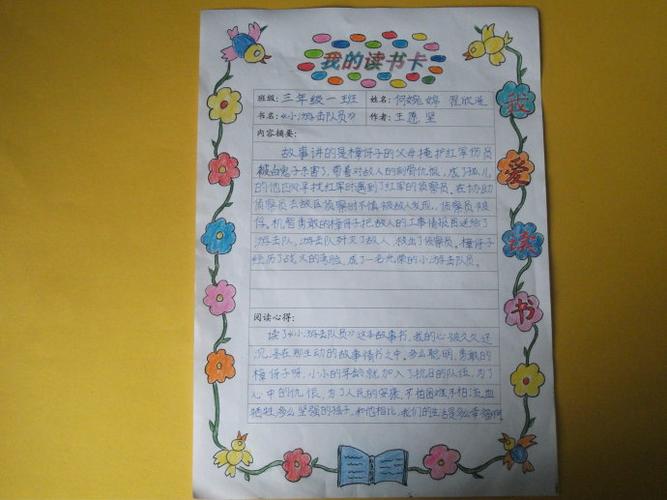 我的读书卡
班级:三年级一班 姓名:何婉婷
书名:《小游击队员》 作者:王愿坚
内容摘要:
故事讲的是樟伢子的父母掩护红军伤员
被白鬼子杀害了,带着对敌人的刻骨仇恨,成了孤儿
的他四处寻找红军时遇到了红军的侦察员,在协助
侦察员去敌区侦察时不慎被敌人发现,侦察员被
俘。机智勇敢的樟伢子把敌人的工事情报员送给了
游击队,游击队歼灭了敌人,救出了侦察员。樟伢子
经历了战火的考验,成了一名光荣的小游击队员。
阅读心得:
读了《小游击队员》这本故事书,我的心被久久这
沉浸在那生动的故事情节之中,多么聪明,勇敢的
樟伢子呀,小小的年龄就加入了抗日的队伍,为了
心中的仇恨,为了人民的安康,不怕困难不怕流血
牺牲,多么坚强的孩子,和他相比,我们的生活是多么幸福啊
我爱读书